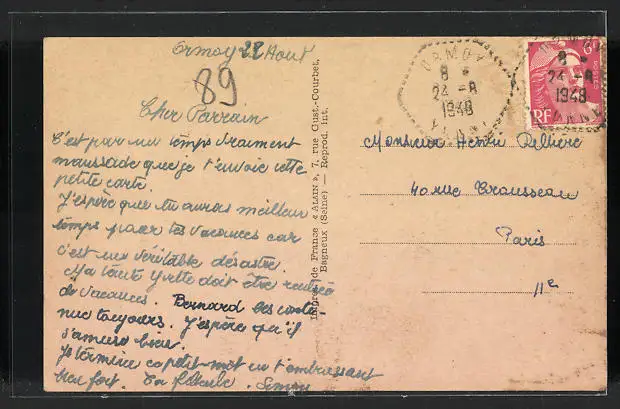 Ormoy 22 Aout
89
Cher Parrain
C'est par un temps vraiment
maussade que je t'envoie cette
petite carte.
J'espère que tu auras meilleur
temps pour tes vacances car
c'est un véritable désastre.
Ma tante Yvette doit être
de vacances. Bernard les conti-
nue toujours. J'espère qu'il
s'amuse bien.
Je termine ce petit mot en t'embrassant
bien fort. Ta filleule. Simone
Impres. de France « ALAIN », 7, rue Gust.-Courbet,
Bagneux (Seine) — Reprod. Int.
ORMOY
8 *
24 - 8
1948
ORMOY
8 *
24 - 8
1948
RF
Monsieur Henri
40 rue Trousseau
Paris
11e